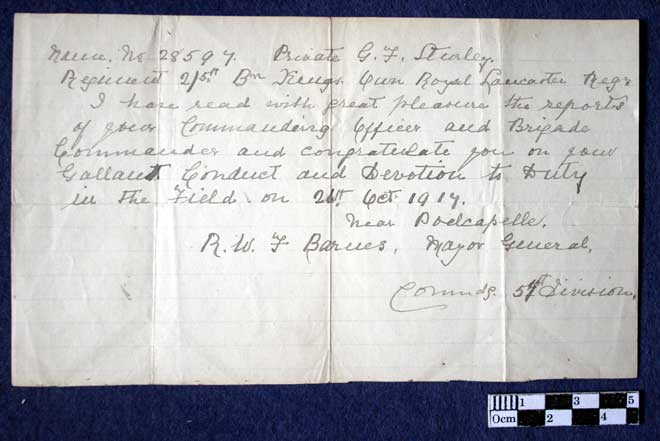 Name. No 28597. Private G. F. Sturley.
Regiment 2/5th Bn Kings Own Royal Lancaster Regt
I have read with great pleasure the reports
of your Commanding Officer and Brigade
Commander and congratulate you on your
Gallant Conduct and Devotion to Duty
in the Field on 26th Oct. 1917.
Near Poelcapelle.
R. W. F Barnes, Mayor General,
Commdg. 57th Division.
0cm 1 2 3 4 5